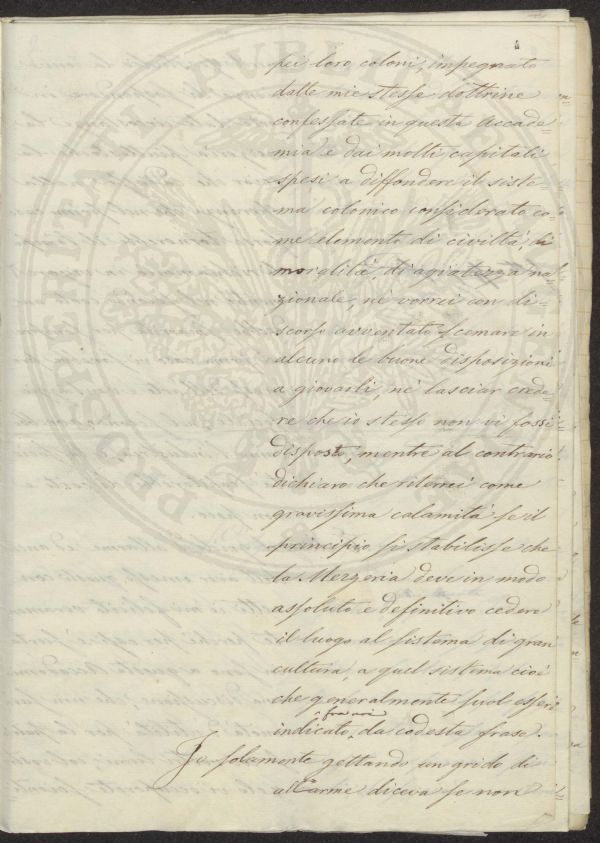 pei loro coloni, impegnato
dalle mie stesse dottrine
confessate in questa Accade=
mia e dai molti capitali
spesi a diffondere il siste-
ma colonico considerato co-
me elemento di civiltà, di
moralità, di agiatezza na-
zionale, nè vorrei con di-
scorso avventato scemare in
alcuno le buone disposizioni
a giovarli, nè lasciar crede-
re che io stesso non vi fossi
disposto, mentre al contrario
dichiaro che riterrei come
gravissima calamità se il
principio si stabilisse che
la Mezzeria deve in modo
assoluto e definitivo cedere
il luogo al sistema di gran
cultura, a quel sistema cioè
che generalmente suol essere
indicato, fra noi da codesta frase.
Io solamente gettando un grido di
allarme diceva se non
PVBLICA
PROSPERITA